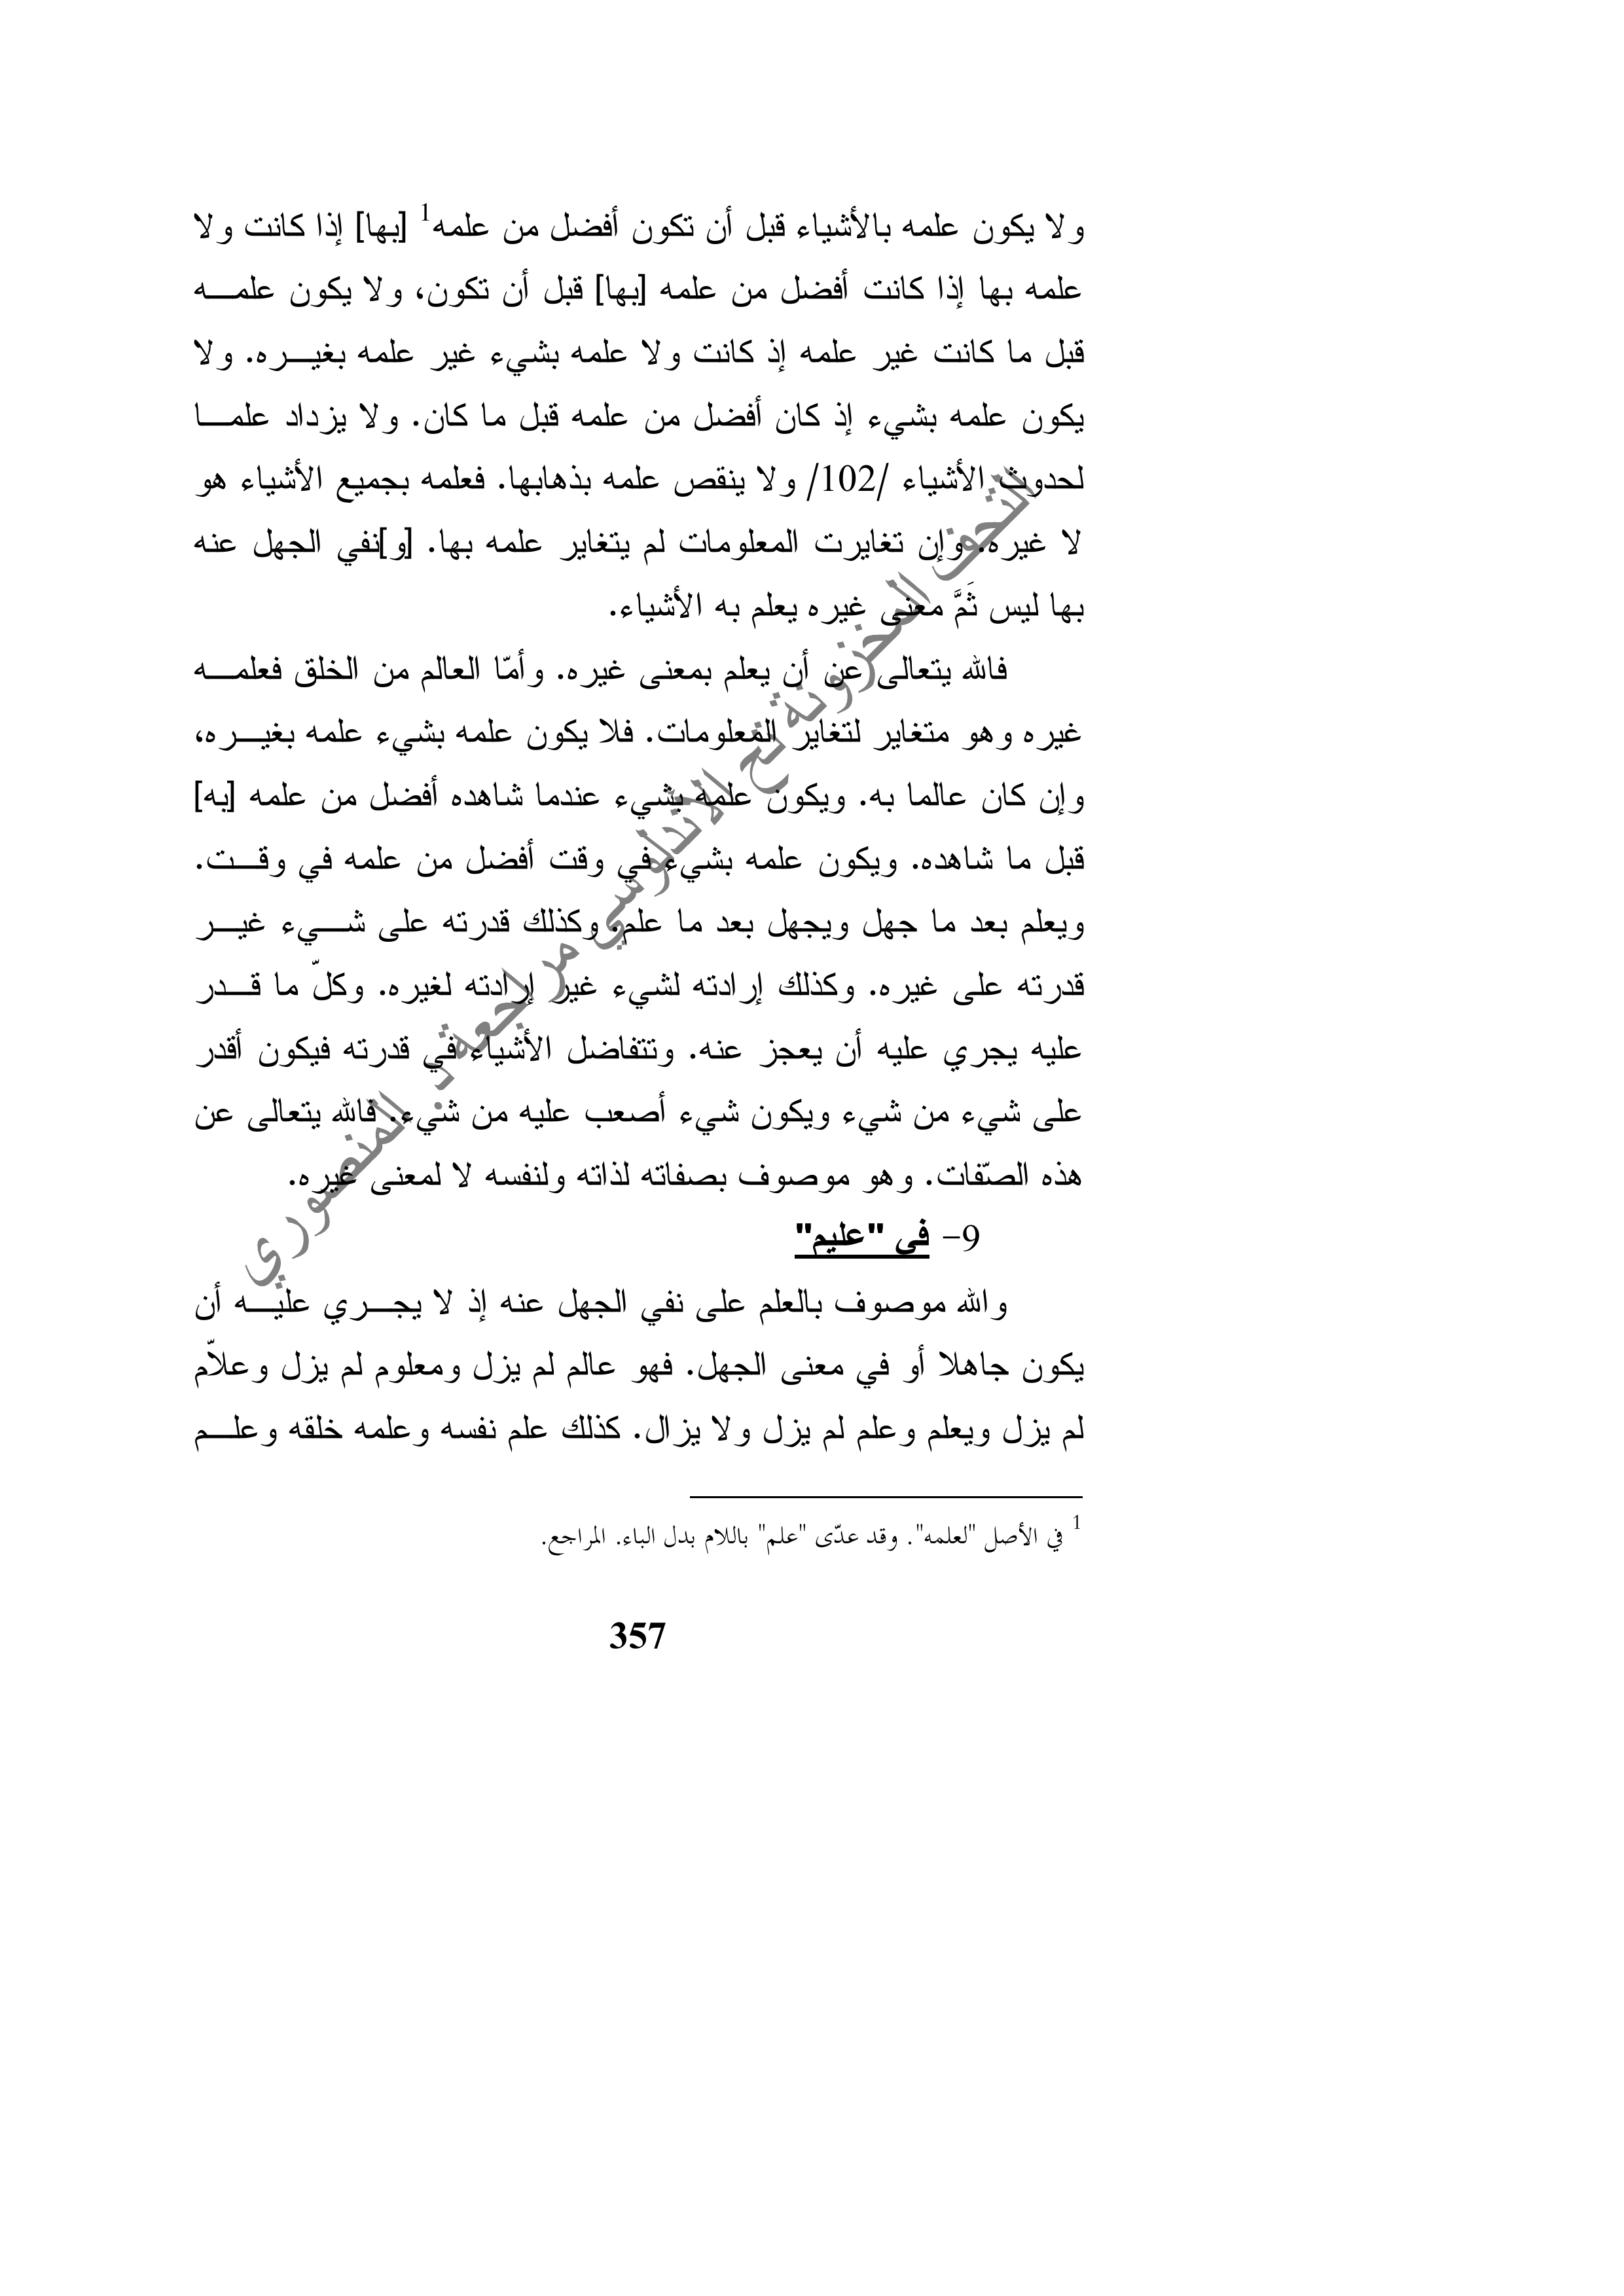 ولا يكون علمه بالأشياء قبل أن تكون أفضل من علمه1 [بها] إذا كانت ولا
علمه بها إذا كانت أفضل من علمه [بها] قبل أن تكون، ولا يكون علمـــه
قبل ما كانت غير علمه إذ كانت ولا علمه بشيء غير علمه بغيـــره. ولا
يكون علمه بشيء إذ كان أفضل من علمه قبل ما كان. ولا يزداد علمـــا
لحدوث الأشياء /102/ ولا ينقص علمه بذهابها. فعلمه بجميع الأشياء هو
لا غيره. وإن تغايرت المعلومات لم يتغاير علمه بها. [و]نفي الجهل عنه
بها ليس ثَمَّ معنى غيره يعلم به الأشياء.
فالله يتعالى عن أن يعلم بمعنى غيره. وأمّا العالم من الخلق فعلمـــه
غيره وهو متغاير لتغاير المعلومات. فلا يكون علمه بشيء علمه بغيـــره،
وإن كان عالما به. ويكون علمه بشيء عندما شاهده أفضل من علمه [به]
قبل ما شاهده. ويكون علمه بشيء في وقت أفضل من علمه في وقـــت.
ويعلم بعد ما جهل ويجهل بعد ما علم. وكذلك قدرته على شـــيء غيـــر
قدرته على غيره. وكذلك إرادته لشيء غير إرادته لغيره. وكلّ ما قـــدر
عليه يجري عليه أن يعجز عنه. وتتفاضل الأشياء في قدرته فيكون أقدر
على شيء من شيء ويكون شيء أصعب عليه من شيء. فالله يتعالى عن
هذه الصّفات. وهو موصوف بصفاته لذاته ولنفسه لا لمعنى غيره.
9- في "عليم"
والله موصوف بالعلم على نفي الجهل عنه إذ لا يجـــري عليـــه أن
يكون جاهلا أو في معنى الجهل. فهو عالم لم يزل ومعلوم لم يزل وعلاّم
لم يزل ويعلم وعلم لم يزل ولا يزال. كذلك علم نفسه وعلمه خلقه وعلـــم
1 في الأصل "لعلمه". وقد عدّى "علم" باللام بدل الباء. المراجع.
357
التحف المخزونة تح الأندلوسي مراجعة د. المنصوري